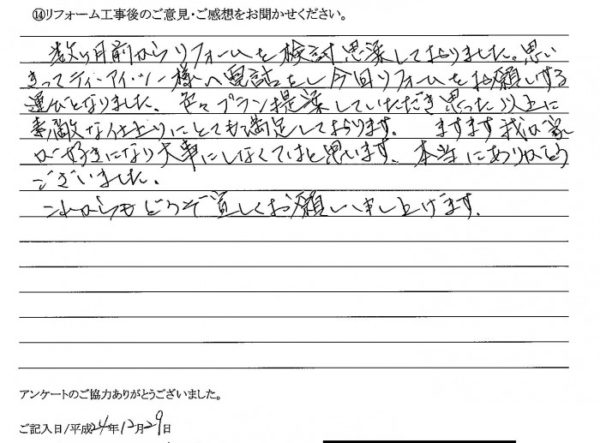 ⑭リフォーム工事後のご意見・ご感想をお聞かせください。
数ヶ月前からリフォームを検討思案しておりました。思い
きってティ・アイ・ツー様へ電話をし今回リフォームをお願いする
運びとなりました。色々プラン提案していただき思った以上に
素敵な仕上りにとても満足しております。 ますます我が家
が好きになり大事にしなくてはと思います。本当にありがとう
ございました。
これからもどうぞ宜しくお願い申し上げます。
アンケートのご協力ありがとうございました。
ご記入日/平成24年12月29日